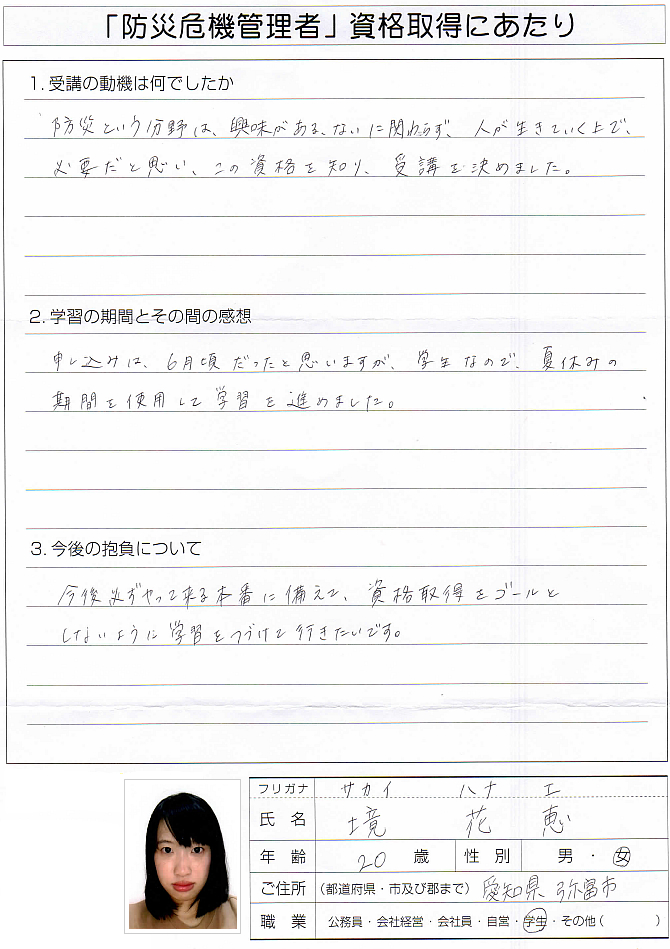 「防災危機管理者」資格取得にあたり
1. 受講の動機は何でしたか
防災という分野は、興味がある、ないに関わらず、人が生きていく上で、
必要だと思い、この資格を知り、受講を決めました。
2. 学習の期間とその間の感想
申し込みは、6月頃だったと思いますが、学生なので、夏休みの
期間を使用して学習を進めました。
3. 今後の抱負について
今後必ずやって来る本番に備えて、資格取得をゴールと
しないように学習をつづけて行きたいです。
フリガナ サカイ ハナエ
氏名 境 花恵
年齢 20 歳 性別 男・女
ご住所 (都道府県・市及び郡まで) 愛知県 弥富市
職業 公務員・会社経営・会社員・自営・学生・その他( )